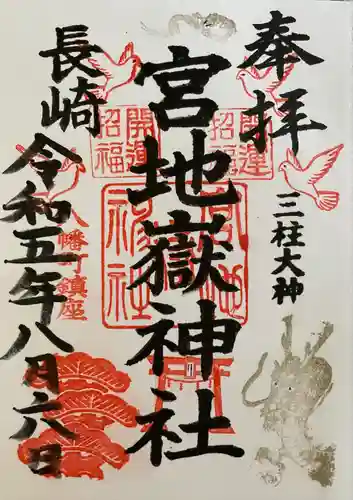 奉拝
三柱大神
宮地嶽神社
開運
招福
開運
招福
宮地嶽神社
長崎
八幡町鎮座
令和五年八月六日